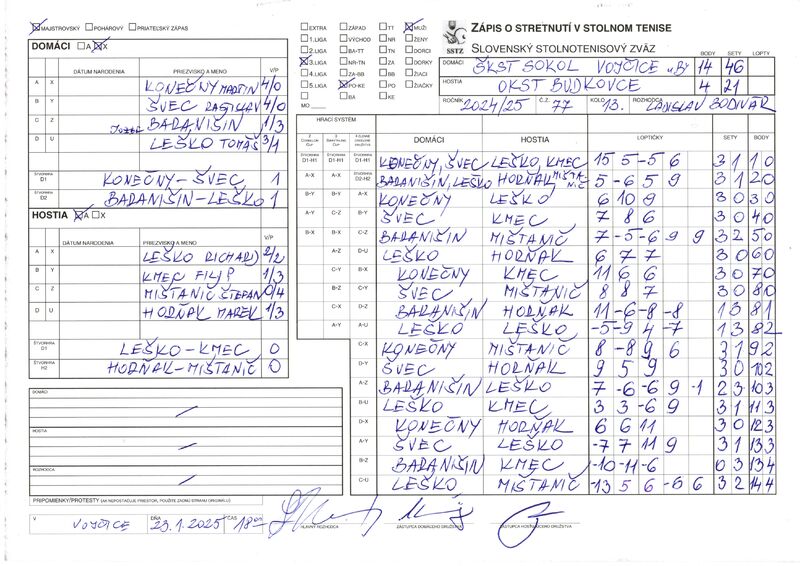 MAJSTROVSKÝ POHÁROVÝ PRIATEĽSKÝ ZÁPAS
EXTRA ZÁPAD TT MUŽI
1.LIGA VÝCHOD NR ŽENY
2.LIGA BA-TT TN DORCI
3.LIGA NR-TN TN DORKY
4.LIGA ZA-BB BB ŽIACI
5.LIGA PO-KE PO ŽIAČKY
BA KE
MO
SSTZ
ZÁPIS O STRETNUTÍ V STOLNOM TENISE
SLOVENSKÝ STOLNOTENISOVÝ ZVÄZ
BODY SETY LOPTY
DOMÁCI ŠKST SOKOL VOJČICE "B" 14 46
HOSTIA OKST BUDKOVCE 4 21
ROČNÍK 2024/25 Č.Z. 77 KOLO 13. ROZHODCA LADISLAV BODNÁR
DOMÁCI A X
DÁTUM NARODENIA PRIEZVISKO A MENO V/P
A X KONEČNÝ MARTIN 4/0
B Y ŠVEC RASTISLAV 4/0
C Z JOZEF BARANIŠIN 1/3
D U LEŠKO TOMÁŠ 3/1
ŠTVORHRA D1 KONEČNÝ-ŠVEC 1
ŠTVORHRA D2 BARANIŠIN-LEŠKO 1
HOSTIA A X
DÁTUM NARODENIA PRIEZVISKO A MENO V/P
A X LEŠKO RICHARD 2/2
B Y KMEC FILIP 1/3
C Z MIŠTANIČ ŠTEPAN 0/4
D U HORŇAK MAREK 1/3
ŠTVORHRA H1 LEŠKO-KMEC 0
ŠTVORHRA H2 HORŇAK-MIŠTANIČ 0
DOMÁCI
HOSTIA
ROZHODCA
HRACÍ SYSTÉM
DOMÁCI HOSTIA LOPTIČKY SETY BODY
KONEČNÝ, ŠVEC LEŠKO, KMEC 15 5 -5 6 3 1 1 0
BARANIŠIN, LEŠKO HORŇAK MIŠTANIČ 5 -6 5 9 3 1 2 0
KONEČNÝ LEŠKO 6 10 9 3 0 3 0
ŠVEC KMEC 7 8 6 3 0 4 0
BARANIŠIN MIŠTANIČ 7 -5 -6 9 9 3 2 5 0
LEŠKO HORŇAK 6 7 7 3 0 6 0
KONEČNÝ KMEC 11 6 6 3 0 7 0
ŠVEC MIŠTANIČ 8 8 7 3 0 8 0
BARANIŠIN HORŇAK 11 -6 -8 -8 1 3 8 1
LEŠKO LEŠKO -5 -9 4 -7 1 3 8 2
KONEČNÝ MIŠTANIČ 8 -8 9 6 3 1 9 2
ŠVEC HORŇAK 9 5 9 3 0 10 2
BARANIŠIN LEŠKO 7 -6 -6 9 -1 2 3 10 3
LEŠKO KMEC 3 3 -6 9 3 1 11 3
KONEČNÝ HORŇAK 6 6 11 3 0 12 3
ŠVEC LEŠKO -7 7 11 9 3 1 13 3
BARANIŠIN KMEC -10 -11 -6 0 3 13 4
LEŠKO MIŠTANIČ -13 5 6 -6 6 3 2 14 4
PRIPOMIENKY/PROTESTY (AK NEPOSTAČUJE PRIESTOR, POUŽITE ZADNÚ STRANU ORIGINÁLU)
V VOJČICE DŇA 23.1.2025 ČAS 18:00
HLAVNÝ ROZHODCA ZÁSTUPCA DOMÁCEHO DRUŽSTVA ZÁSTUPCA HOSŤUJÚCEHO DRUŽSTVA